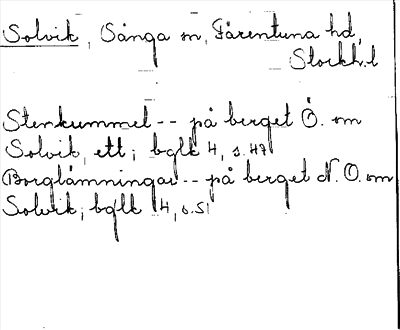 Solvik, Sånga sn, Färentuna hd,
Stockh.l
Stenkummel -- på berget Ö. om
Solvik, ett; bglt 4, s. 47
Borglämningar -- på berget N.O. om
Solvik; bglt 4, s. 51